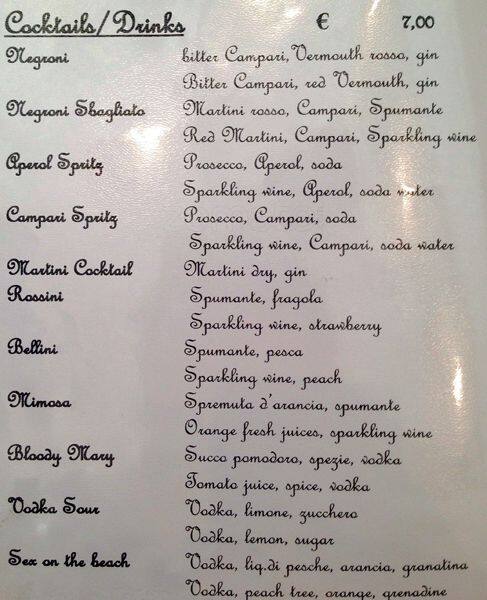 Cocktails/Drinks € 7,00
Negroni bitter Campari, Vermouth rosso, gin
Bitter Campari, red Vermouth, gin
Negroni Sbagliato Martini rosso, Campari, Spumante
Red Martini, Campari, Sparkling wine
Aperol Spritz Prosecco, Aperol, soda
Sparkling wine, Aperol, soda water
Campari Spritz Prosecco, Campari, soda
Sparkling wine, Campari, soda water
Martini Cocktail Martini dry, gin
Rossini Spumante, fragola
Sparkling wine, strawberry
Bellini Spumante, pesca
Sparkling wine, peach
Mimosa Spremuta d'arancia, spumante
Orange fresh juices, sparkling wine
Bloody Mary Succo pomodoro, spezie, vodka
Tomato juice, spice, vodka
Vodka Sour Vodka, limone, zucchero
Vodka, lemon, sugar
Sex on the beach Vodka, liq.di pesche, arancia, granatina
Vodka, peach tree, orange, grenadine